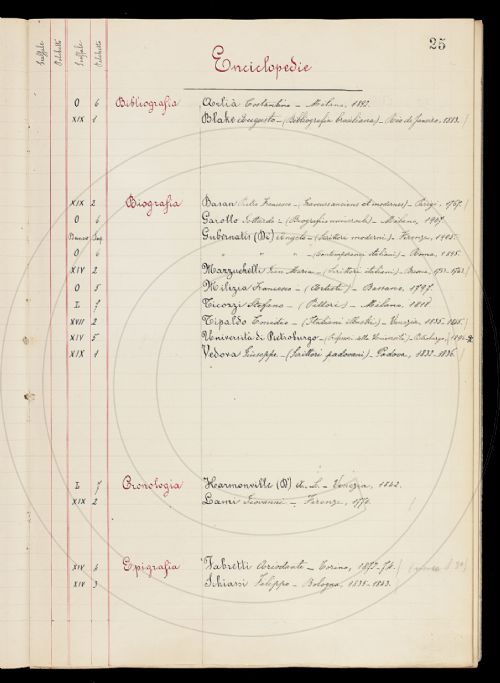 25
Scaffale Palchetto Scaffale Palchetto
Enciclopedie
O 6 Bibliografia Arlià Costantino – Milano, 1892.
XIX 1 Blake Augusto – (Bibliografia brasiliana) – Rio de Janeiro, 1883.
XIX 2 Biografia Basan Pietro Francesco – (Graveurs anciens et modernes) – Parigi, 1767.
O 6 Garollo Gottardo – (Biografia universale) – Milano, 1907.
Banco Sup. Gubernatis (De) Angelo – (Scrittori moderni) – Firenze, 1905.
O 6 " " " – (Contemporanei italiani) – Roma, 1895.
XIV 2 Mazzuchelli Gian Maria – (Scrittori italiani) – Brescia, 1753-1763.
O 5 Milizia Francesco – (Artisti) – Bassano, 1797.
L 7 Ticozzi Stefano – (Pittori) – Milano, 1818.
XVII 2 Tipaldo Emilio – (Italiani illustri) – Venezia, 1835-1845.
XIV 5 Università di Pietroburgo – Pietroburgo,
XIX 1 Vedova Giuseppe – (Scrittori padovani) – Padova, 1832-1836.
L 7 Cronologia Harmonville (D') A. L. – Venezia, 1842.
XIX 2 Lami Giovanni – Firenze, 1770.
XIV 4 Epigrafia Fabretti Ariodante – Torino, 1872-74.
XIV 3 Schiassi Filippo – Bologna,